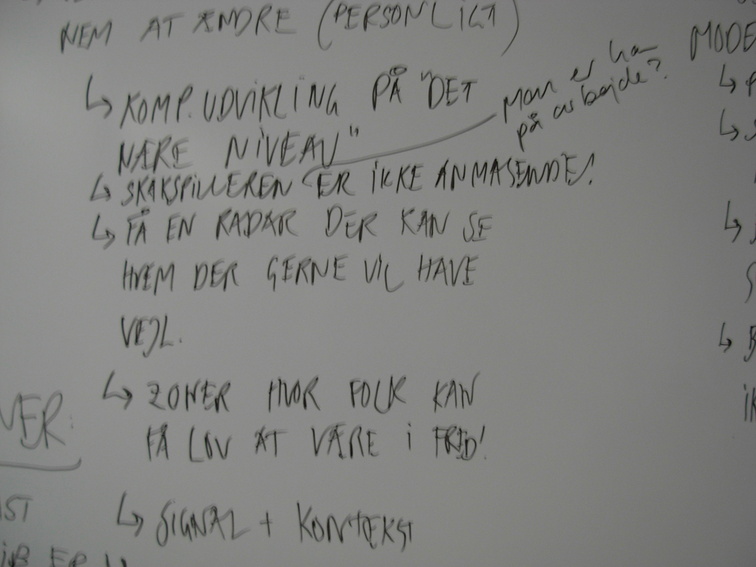 NEM AT ÆNDRE (PERSONLIGT)
↳ KOMP. UDVIKLING PÅ "DET
NÆRE NIVEAU"
Men er han
på arbejde?
↳ SKAKSPILLEREN ER IKKE ANMASENDE!
↳ FÅ EN RADAR DER KAN SE
HVEM DER GERNE VIL HAVE
VEJL.
↳ ZONER HVOR FOLK KAN
FÅ LOV AT VÆRE I FRED!
↳ SIGNAL + KONTEKST
VER:
IST
MODE
↳ P
↳
↳
S
↳ B
IK